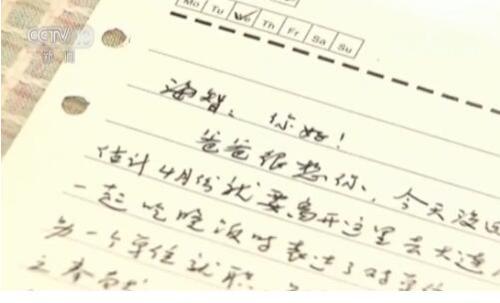 CCTV
新闻
Mo Tu We Th Fr Sa Su
海智，你好！
爸爸很想你，今天没
估计4月份就要离开这里去大连
一起吃 没 表达了对
另一个单位就职